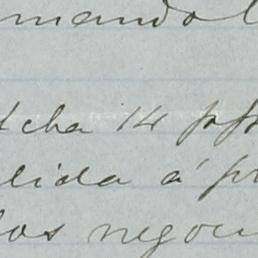 mandol
tcha 14 pp
lida á pr
los negoci